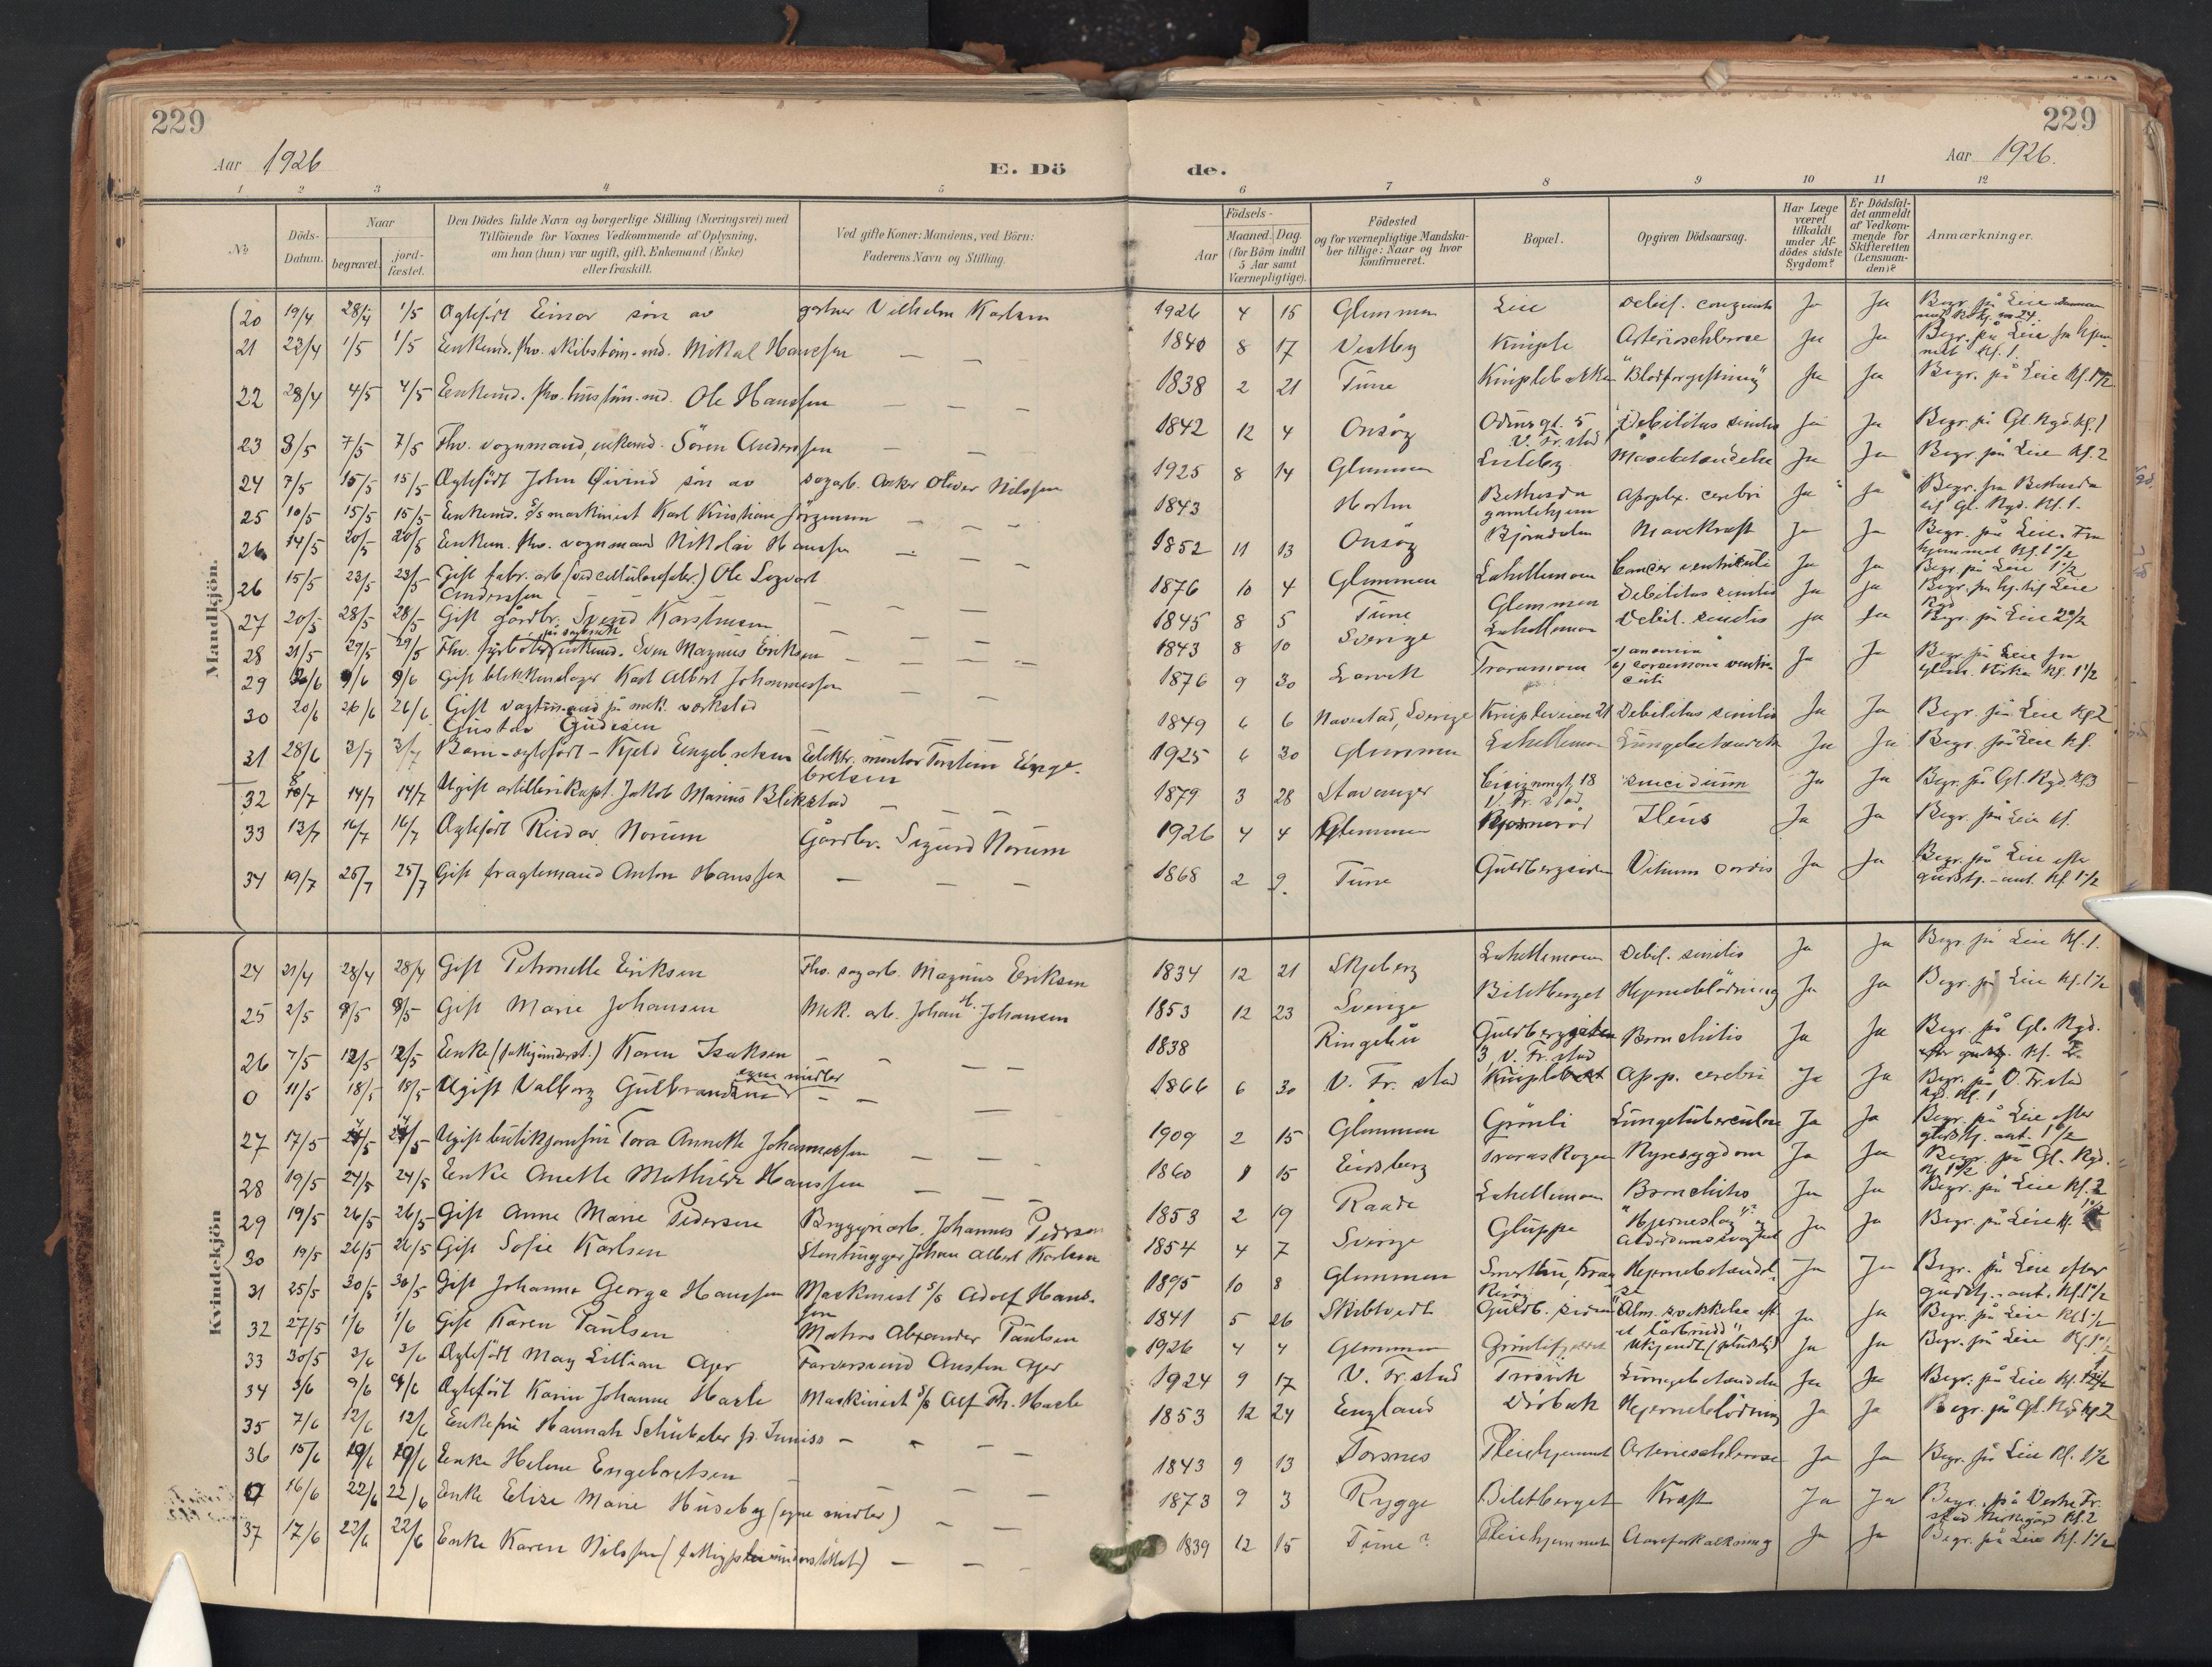 229
229
Aar 1926
E. Dö
de.
Aar 1926.
1 2 3 4 5 6 7 8 9 10 11 12
No
Döds-Datum.
Naar
begravet.
jord-fæstet.
Den Dödes fulde Navn og borgerlige Stilling (Næringsvei) med
Tilföiende for Voxnes Vedkommende af Oplysning,
om han (hun) var ugift, gift, Enkemand (Enke)
eller fraskilt.
Ved gifte Koner: Mandens, ved Börn:
Faderens Navn og Stilling.
Födsels-
Aar
Maaned. Dag.
(for Börn indtil
5 Aar samt
Værnepligtige).
Födested
og for værnepligtige Mandska-
ber tillige: Naar og hvor
konfirmeret.
Bopæl.
Opgiven Dödsaarsag.
Har Læge
været
tilkaldt
under Af-
dödes sidste
Sygdom?
Er Dödsfal-
det anmeldt
af Vedkom-
mende for
Skifteretten
(Lensman-
den)?
Anmærkninger.
Mandkjön.
20 19/4 28/4 1/5 Ægtefødt Einar søn av gartner Vilhelm Karlsen 1926 4 15 Glemmen Leie Debil. Ja Ja Begr. på Leie
21 23/4 1/5 1/5 Enkemd. fhv. Mikal Hansen 1840 8 17 Vestby Kniple Arteriosclerose Ja Ja Begr. på Leie fra hjem-
met kl. 1.
22 28/4 4/5 4/5 Enkemd. fhv. Ole Hanssen 1838 2 21 Tune Kniplebakken "Blodforgiftning" Ja Ja Begr. på Leie kl. 1 1/2
23 3/5 7/5 7/5 Fhv. vognmand, enkemd. Sören Anderssen 1842 12 4 Onsøy Odins gt. 5
V. Fr.stad Debilitas senilis Ja Ja Begr. på Gl. Kgd. kl. 1
24 7/5 15/5 15/5 Ægtefødt John Øivind søn av sagarb. Oskar Oliver Nilssen 1925 8 14 Glemmen Lisleby Ja Ja Begr. på Leie kl. 2
25 10/5 15/5 15/5 Enkemd. D/S maskinist Karl Kristian Jörgensen 1843 Horten Bethesda
gamlehjem Apoplex. cerebri Ja Ja Begr. fra Bethesda
til Gl. Kgd. kl. 1.
26 14/5 20/5 20/5 Enkem. fhv. vognmand Nikolai Hanssen 1852 11 13 Onsøy Björndalen Mavekræft Ja Ja Begr. på Leie. Fra
hjemmet kl. 1 1/2
26 15/5 23/5 23/5 Gift fabr. arb. (ved cellulosefabr.) Ole Edvart
Anderssen 1876 10 4 Glemmen Lahellemoen Cancer ventriculi Ja Ja Begr. på Leie 1 1/2
27 20/5 28/5 28/5 Gift gårdbr. Svend Karstensen 1845 8 5 Tune Glemmen Debilitas senilis Ja Ja Begr. fra hj. til Leie
Kgd
28 21/5 29/5 29/5 Fhv. fyrböter på sagbruk enkemd. Sven Magnus Eriksen 1843 8 10 Sverige Lahellemoen Debil. senilis Ja Ja Begr. på Leie 2 1/2
29 9/6 9/6 Gift blikkenslager Karl Albert Johannessen 1876 9 30 Larvik Traramoen a) anæmia
b) carcinoma ventri-
culi Ja Ja Begr. på Leie fra
Glem. Kirke kl. 1 1/2
30 20/6 26/6 26/6 Gift vagtmand på mek. verksted
Gustav Gudesen 1849 6 6 Navestad, Sverige Knipleveien 21 Debilitas senilis Ja Ja Begr. på Leie kl. 2
31 28/6 3/7 3/7 Barn-ægtefødt - Kjeld Engebretsen Elektr. montør Torstein Enge-
bretsen 1925 6 30 Glemmen Lahellemoen Lungebetændelse Ja Ja Begr. på Leie kl.
32 14/7 14/7 Ugift artillerikapt. Jakob Marius Blikstad 1879 3 28 Stavanger 18
V. Fr.stad suicidium Ja Ja Begr. på Gl. Kgd. kl. 3
33 13/7 16/7 16/7 Ægtefødt Reidar Norum Gårdbr. Sigurd Norum 1926 4 4 Glemmen Ileus Ja Ja Begr. på Leie kl.
34 19/7 25/7 25/7 Gift fragtemand Anton Hanssen 1868 2 9. Tune Guldbergsiden Vitium cordis Ja Ja Begr. på Leie efter
gudstj. - ant. kl. 1 1/2
Kvindekjön
24 21/4 28/4 28/4 Gift Petronelle Eriksen Fhv. sagarb. Magnus Eriksen 1834 12 21 Skjeberg Lahellemoen Debil. senilis Ja Ja Begr. på Leie kl. 1.
25 2/5 8/5 8/5 Gift Marie Johansen Mek. arb. Johan H. Johansen 1853 12 23 Sverige Biletberget Hjerneblödning Ja Ja Begr. på Leie kl. 1 1/2
26 7/5 12/5 12/5 Enke (fattigunderst.) Karen Isaksen 1838 Ringebu
3, V. Fr.stad Bronchitis Ja Ja Begr. på Gl. Kgd.
efter gudstj. kl. 2
0 11/5 18/5 18/5 Ugift Valborg Gulbrandsen egne midler 1866 6 30 V. Fr. stad Apop. cerebri Ja Ja Begr. på V. Fr.stad
Kgd. kl. 1
27 17/5 24/5 24/5 Ugift butikjomfru Tora Annette Johannessen 1909 2 15 Glemmen Grönli Lungetuberculose Ja Ja Begr. på Leie efter
gudstj. ant. 1 1/2
28 19/5 24/5 24/5 Enke Anette Mathilde Hanssen 1860 1 15 Eidsberg Nyresygdom Ja Ja Begr. på Gl. Kgd.
kl. 1 1/2
29 19/5 26/5 26/5 Gift Anne Marie Pedersen Bryggeriarb. Johannes Pedersen 1853 2 19 Raade Lahellemoen Bronchitis Ja Ja Begr. på Leie kl. 2
30 19/5 26/5 26/5 Gift Sofie Karlsen Stenhugger Johan Albert Karlsen 1854 4 7 Sverige Gluppe "Hjerneslag" og
alderdomssvaghed Ja Ja Begr. på Leie kl.
31 25/5 30/5 30/5 Gift Johanne Georga Hanssen Maskinist S/S Adolf Hans-
sen 1895 10 8 Glemmen Hjernebetændel-
se Ja Ja Begr. på Leie efter
gudstj. - ant. kl. 1 1/2
32 27/5 1/6 1/6 Gift Karen Paulsen Matros Alexander Paulsen 1841 5 26 Skibtvedt Guldb. siden "Alm. svekkelse eft.
et lårbrudd" Ja Ja Begr. på Leie kl. 1 1/2
33 30/5 3/6 3/6 Ægtefødt May Lillian Ager Farversvend Austen Ager 1926 4 4 Glemmen Ukjendt (pludselig) Ja Ja Begr. på Leie kl. 1 1/2
34 3/6 9/6 9/6 Ægtefödt Karin Johanne Harle Maskinist S/S Alf Th. Harle 1924 9 17 V. Fr.stad Trosvik Lungebetændelse Ja Ja Begr. på Leie kl.
35 7/6 12/6 12/6 Enkefru Hannah Schübeler f. Inniss 1853 12 24 England Hjerneblödning Ja Ja Begr. på Gl. Kgd kl. 2
36 15/6 19/6 19/6 Enke Helene Engebretsen 1843 9 13 Torsnes Pleiehjemmet Arteriosclerose Ja Ja Begr. på Leie kl. 1 1/2
0 16/6 22/6 22/6 Enke Elise Marie Huseby (egne midler) 1873 9 3 Rygge Biletberget Kræft Ja Ja Begr. på Vestre Fr.
stad Kirkegård kl. 2
37 17/6 22/6 22/6 Enke Karen Nilssen (fattigpleieunderstöttet) 1839 12 15 Tune? Pleiehjemmet Aareforkalkning Ja Ja Begr. på Leie kl. 1 1/2